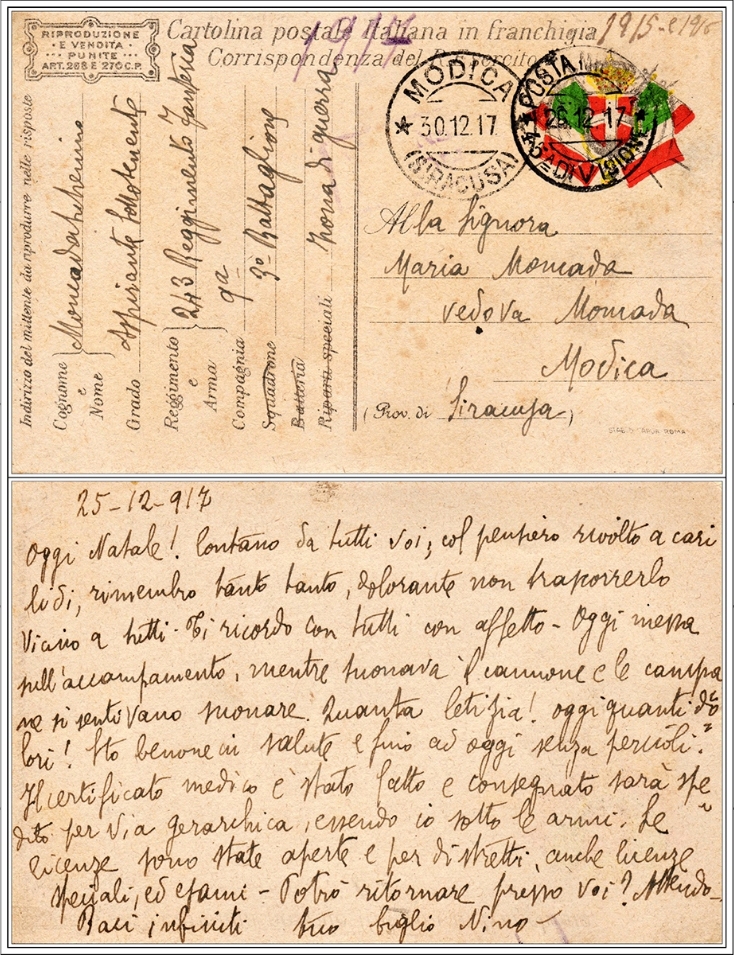 RIPRODUZIONE
E VENDITA
PUNITE
ART. 268 E 270 C.P.
Cartolina postale italiana in franchigia
1917
1915-e 1916
Corrispondenza del R. Esercito
Indirizzo del mittente da riprodurre nelle risposte
Cognome e Nome Moncada
Grado Aspirante Sottotenente
Reggimento e Arma 243 Reggimento Fanteria
Compagnia 9a
Squadrone 3º Battaglione
Batteria
Riparti speciali Zona di guerra
MODICA
30.12.17
(SIRACUSA)
POSTA
26.12.17
DIVISIONE
Alla Signora
Maria Moncada
vedova Moncada
Modica
(Prov. di Siracusa)
25-12-917
Oggi Natale! Lontano da tutti voi, col pensiero rivolto a cari
lidi, rimembro tanto tanto, dolorante non trascorrerlo
vicino a tutti. Ti ricordo con tutti con affetto - Oggi messa
nell'accampamento, mentre suonava il cannone e le campa
ne si sentivano suonare. Quanta letizia! oggi quanti do
lori! Sto benone in salute e fino ad oggi senza pericoli.
Il certificato medico è stato fatto e consegnato sarà spe
dito per via gerarchica, essendo io sotto le armi. Le
licenze sono state aperte e per distretti, anche licenze
speciali, ed esami - Potrò ritornare presso voi? Attendo -
Baci infiniti tuo figlio Nino